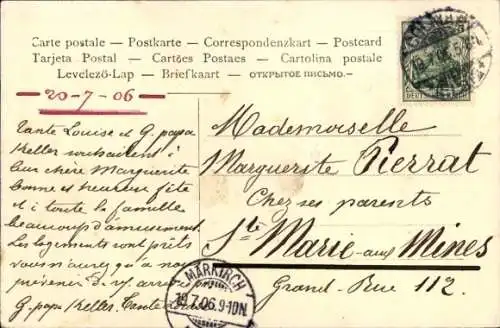 Carte postale — Postkarte — Correspondenzkart — Postcard
Tarjeta Postal — Cartões Postaes — Cartolina postale
Levelező-Lap — Briefkaart — ОТКРЫТОЕ ПИСЬМО.—
20-7-06
Tante Louise et G. papa
Keller souhaitent à
leur chère Marguerite
bonne et heureuse fête
et à toute la famille
beaucoup d'amusement.
Les logements sont prêts
vous n'aurez qu'à nous
prévenir de v. arrivée
G. papa Keller. Tante Louise
Mademoiselle
Marguerite Pierrat
Chez ses parents
Ste Marie-aux Mines
Grand-Rue 112.
MARKIRCH
19.7.06.9-10N.